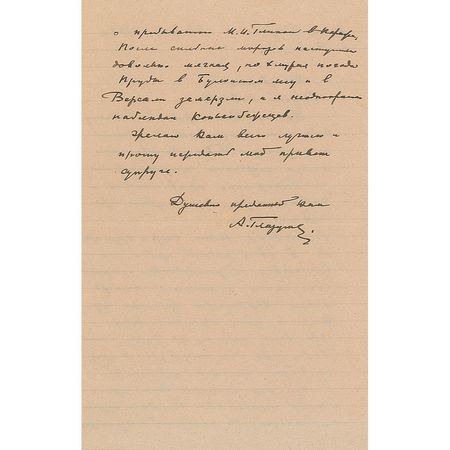 о пребывании М. И. Глинки в Париже.
После сильных морозов наступила
довольно мягкая, но хмурая погода
Пруды в Булонском лесу и в
Версале замерзли, и я неоднократно
наблюдал конькобежцев.
Желаю Вам всего лучшего и
прошу передать мой привет
супруге.
Душевно преданный Вам
А. Глазунов